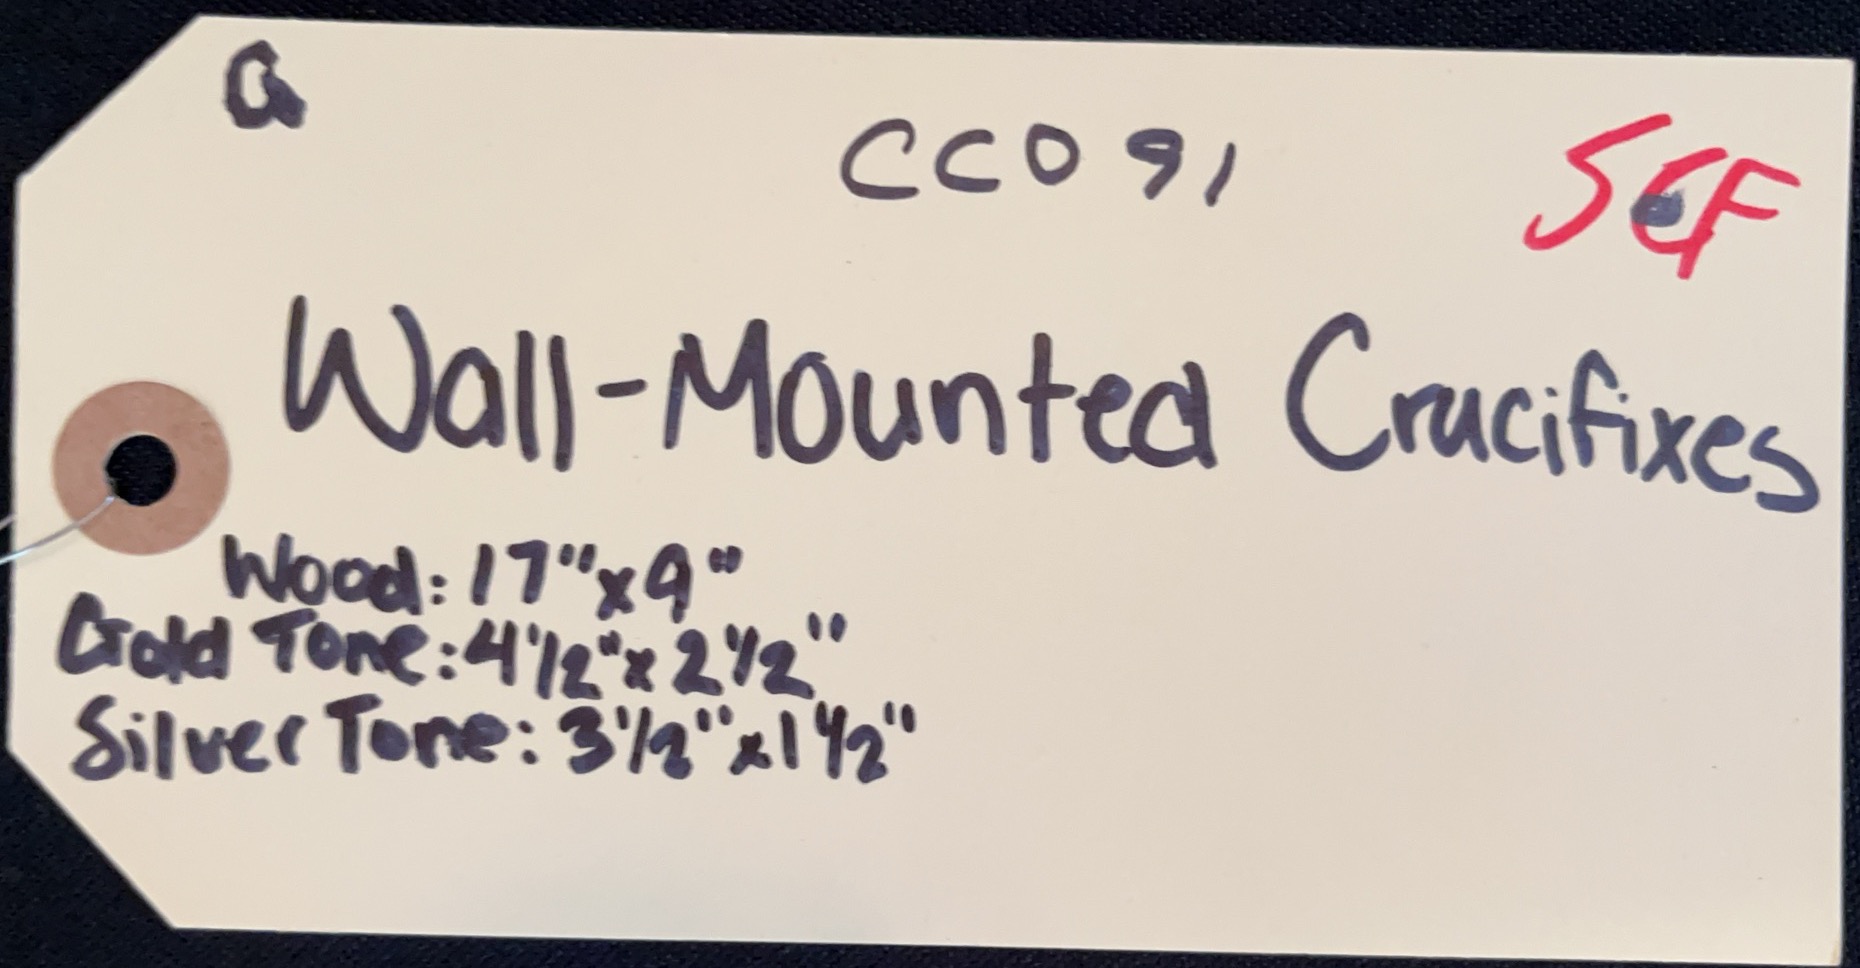 G
CC091
SCF
Wall-Mounted Crucifixes
Wood: 17"x9"
Gold Tone: 4 1/2" x 2 1/2"
Silver Tone: 3 1/2" x 1 1/2"